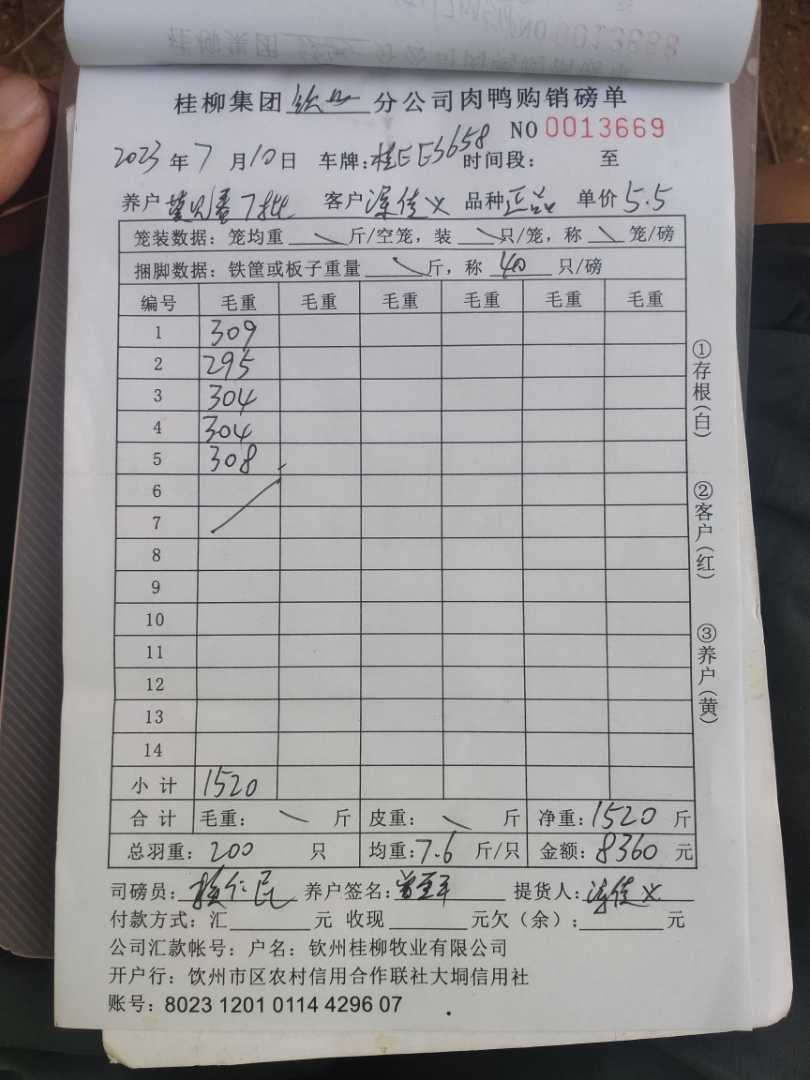 桂柳集团 钦州 分公司肉鸭购销磅单
NO 0013669
2023 年 7 月 10 日 车牌: 桂EE3658 时间段: 至
养户 7批 客户 佳义 品种 正品 单价 5.5
笼装数据: 笼均重 斤/空笼, 装 只/笼, 称 笼/磅
捆脚数据: 铁筐或板子重量 斤, 称 40 只/磅
编号 毛重 毛重 毛重 毛重 毛重 毛重
1 309
2 295
3 304
4 304
5 308
6
7
8
9
10
11
12
13
14
小计 1520
合计 毛重: 斤 皮重: 斤 净重: 1520 斤
总羽重: 200 只 均重: 7.6 斤/只 金额: 8360 元
司磅员: 仁民 养户签名: 提货人: 佳义
付款方式: 汇 元 收现 元欠(余): 元
公司汇款帐号: 户名: 钦州桂柳牧业有限公司
开户行: 饮州市区农村信用合作联社大垌信用社
账号: 8023 1201 0114 4296 07
①存根(白)
②客户(红)
③养户(黄)